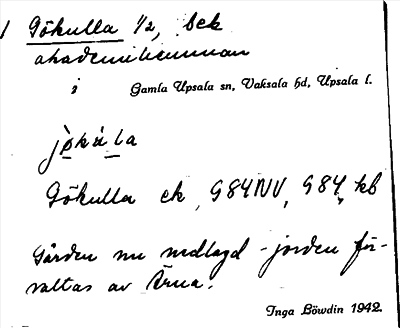 1 Gökulla 1/2, bek
akademihemman
i Gamla Upsala sn, Vaksala hd, Upsala l.
jø̀kúla
Gökulla ek, G84NV, G84, kb
Gården nu nedlagd - jorden för-
valtas av Ärna.
Inga Löwdin 1942.